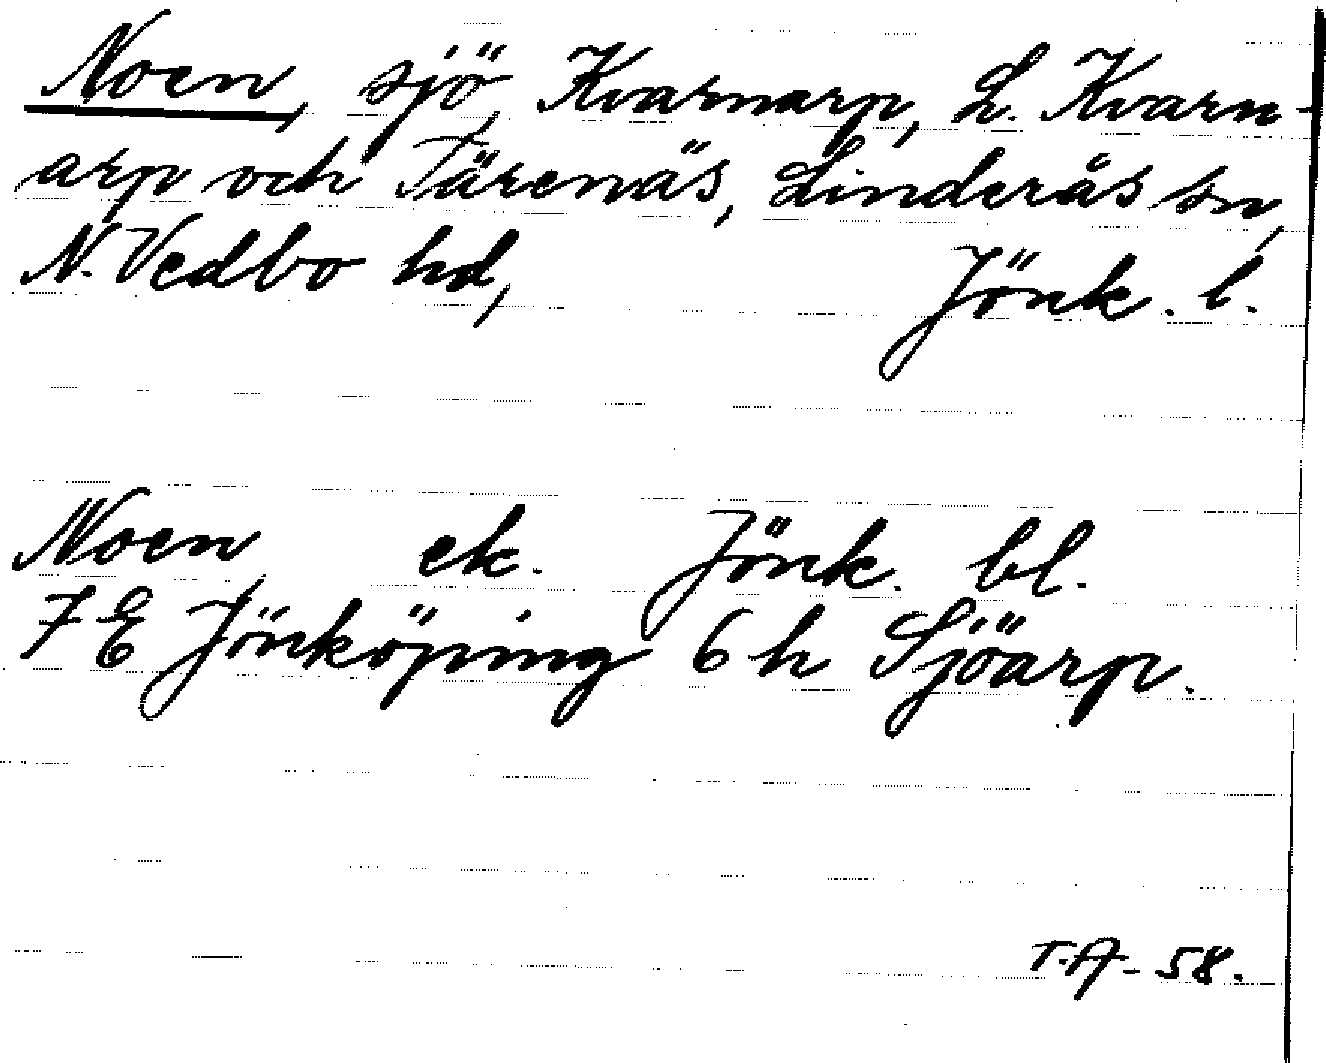 Noen, sjö, Kvarnarp, L. Kvarn-
arp och Tärenäs, Linderås sn,
N. Vedbo hd, Jönk. l.
Noen ek. Jönk. bl.
7 E Jönköping 6 h Sjöarp.
T.A-58.